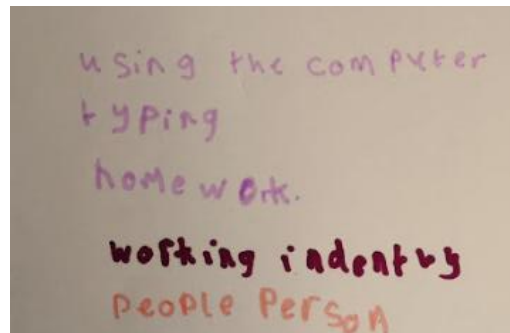 using the computer
typing
homework.
working indentby
people person